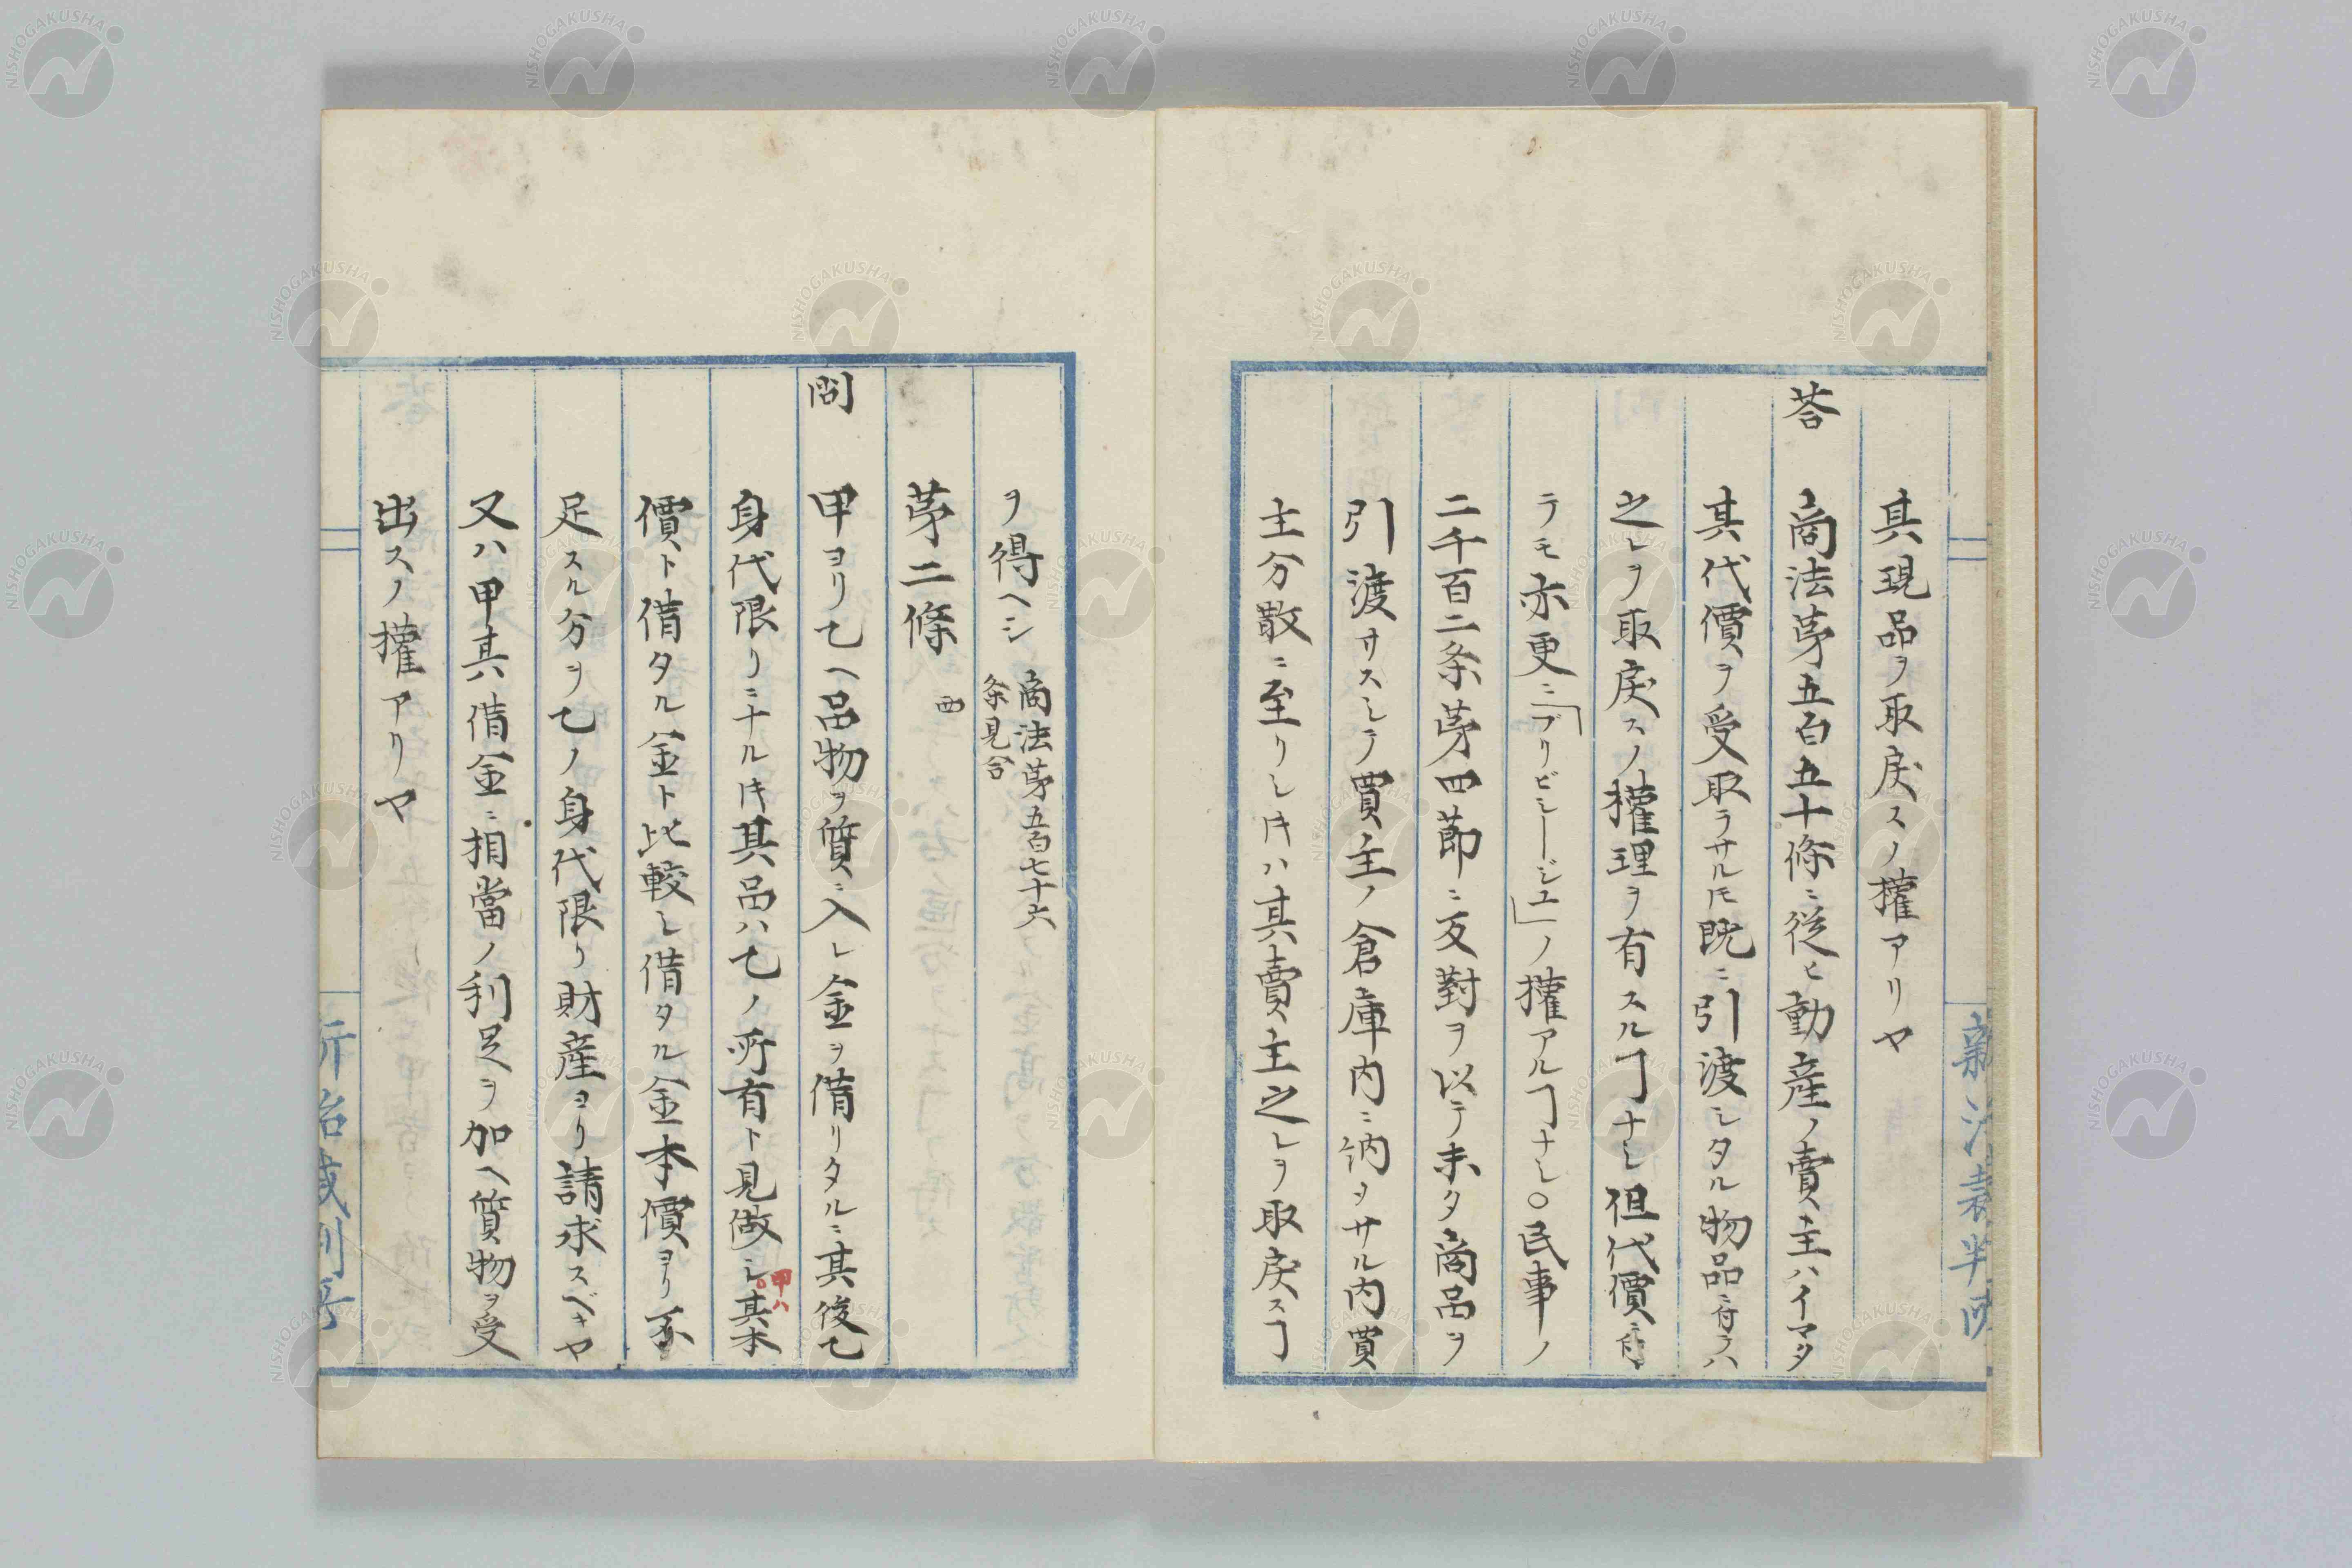 其現品ヲ取戻スノ權アリヤ
荅 商法苐五百五十條ニ從ヒ動産ノ賣主ハイマタ
其代價ヲ受取ラサルモ既ニ引渡シタル物品ニ付テハ
之レヲ取戻スノ權理ヲ有スルヿナシ但代價ニ付
テモ亦更ニ「プリビレージユ」ノ權アルヿナシ○民事ノ
二千百二条苐四節ニ反對ヲ以テ未タ商品ヲ
引渡サスシテ買主ノ倉庫内ニ納ヲサル内買
主分散ニ至リシ𪜈ハ其賣主之レヲ取戻スヿ
ヲ得ヘシ 商法苐五百七十六
条見合
苐二條 西
問 甲ヨリ乙ヘ品物ヲ質ニ入レ金ヲ借リタルニ其後乙
身代限リニナル𬼀其品ハ乙ノ所有ト見做シ甲ハ其本
價ト借タル金ト比較シ借タル金本價ヨリ不
足スル分ヲ乙ノ身代限リ財産ヨリ請求スベキヤ
又ハ甲其借金ニ相當ノ利足ヲ加ヘ質物ヲ受
出スノ權アリヤ
NISHOGAKUSHA